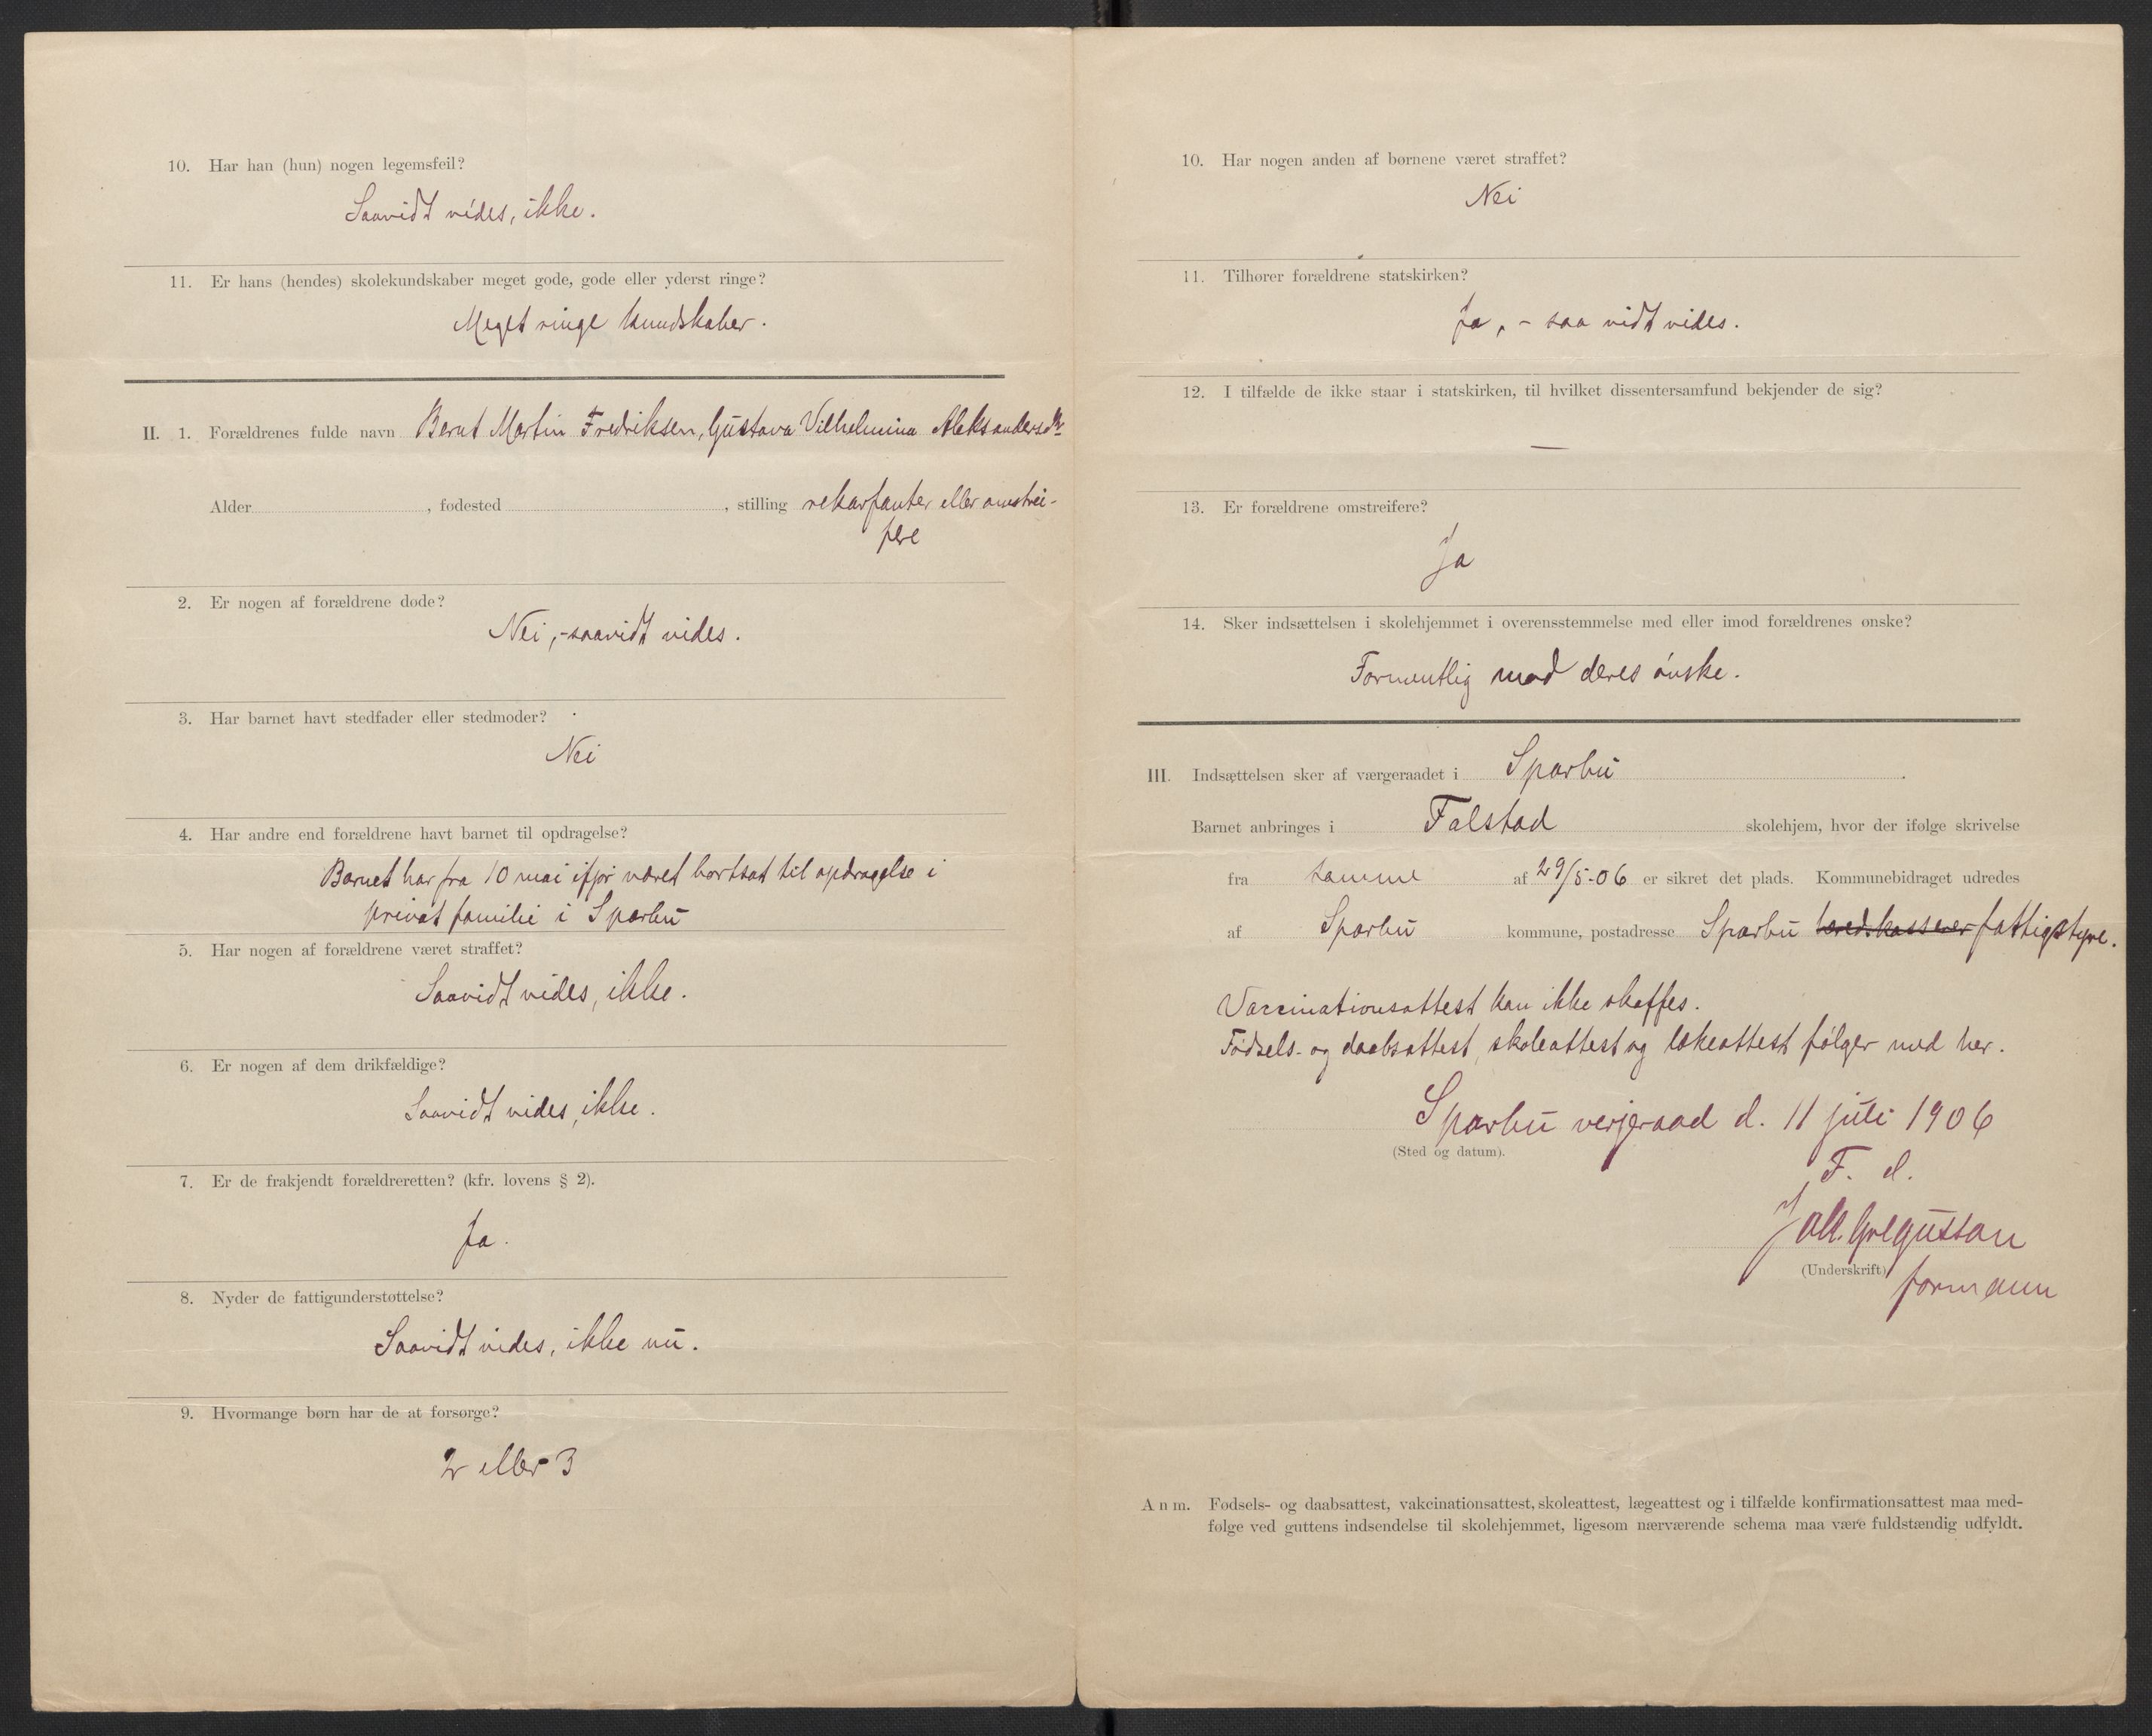 10. Har han (hun) nogen legemsfeil?
Saavidt vides, ikke.
11. Er hans (hendes) skolekundskaber meget gode, gode eller yderst ringe?
Meget ringe kundskaber.
II. 1. Forældrenes fulde navn Bernt Martin Fredriksen, Gustava Vilhelmina Aleksandersdtr
Alder , fødested , stilling rekarfanter eller omstrei-
fere
2. Er nogen af forældrene døde?
Nei, - saavidt vides.
3. Har barnet havt stedfader eller stedmoder?
Nei
4. Har andre end forældrene havt barnet til opdragelse?
Barnet har fra 10 mai ifjor været bortsat til opdragelse i
privat familie i Sparbu
5. Har nogen af forældrene været straffet?
Saavidt vides, ikke.
6. Er nogen af dem drikfældige?
Saavidt vides, ikke.
7. Er de frakjendt forældreretten? (kfr. lovens § 2).
Ja.
8. Nyder de fattigunderstøttelse?
Saavidt vides, ikke nu.
9. Hvormange børn har de at forsørge?
2 eller 3
10. Har nogen anden af børnene været straffet?
Nei
11. Tilhører forældrene statskirken?
Ja, - saa vidt vides.
12. I tilfælde de ikke staar i statskirken, til hvilket dissentersamfund bekjender de sig?
—
13. Er forældrene omstreifere?
Ja
14. Sker indsættelsen i skolehjemmet i overensstemmelse med eller imod forældrenes ønske?
Formentlig mod deres ønske.
III. Indsættelsen sker af værgeraadet i Sparbu.
Barnet anbringes i Falstad skolehjem, hvor der ifølge skrivelse
fra samme af 29/5-06 er sikret det plads. Kommunebidraget udredes
af Sparbu kommune, postadresse Sparbu fattigstyre.
Vaccinationsattest kan ikke skaffes.
Fødsels- og daabsattest, skoleattest og lækeattest følger med her.
Sparbu verjeraad d. 11 juli 1906
(Sted og datum).
F. d.
(Underskrift)
formann
Anm. Fødsels- og daabsattest, vakcinationsattest, skoleattest, lægeattest og i tilfælde konfirmationsattest maa med-
følge ved guttens indsendelse til skolehjemmet, ligesom nærværende schema maa være fuldstændig udfyldt.